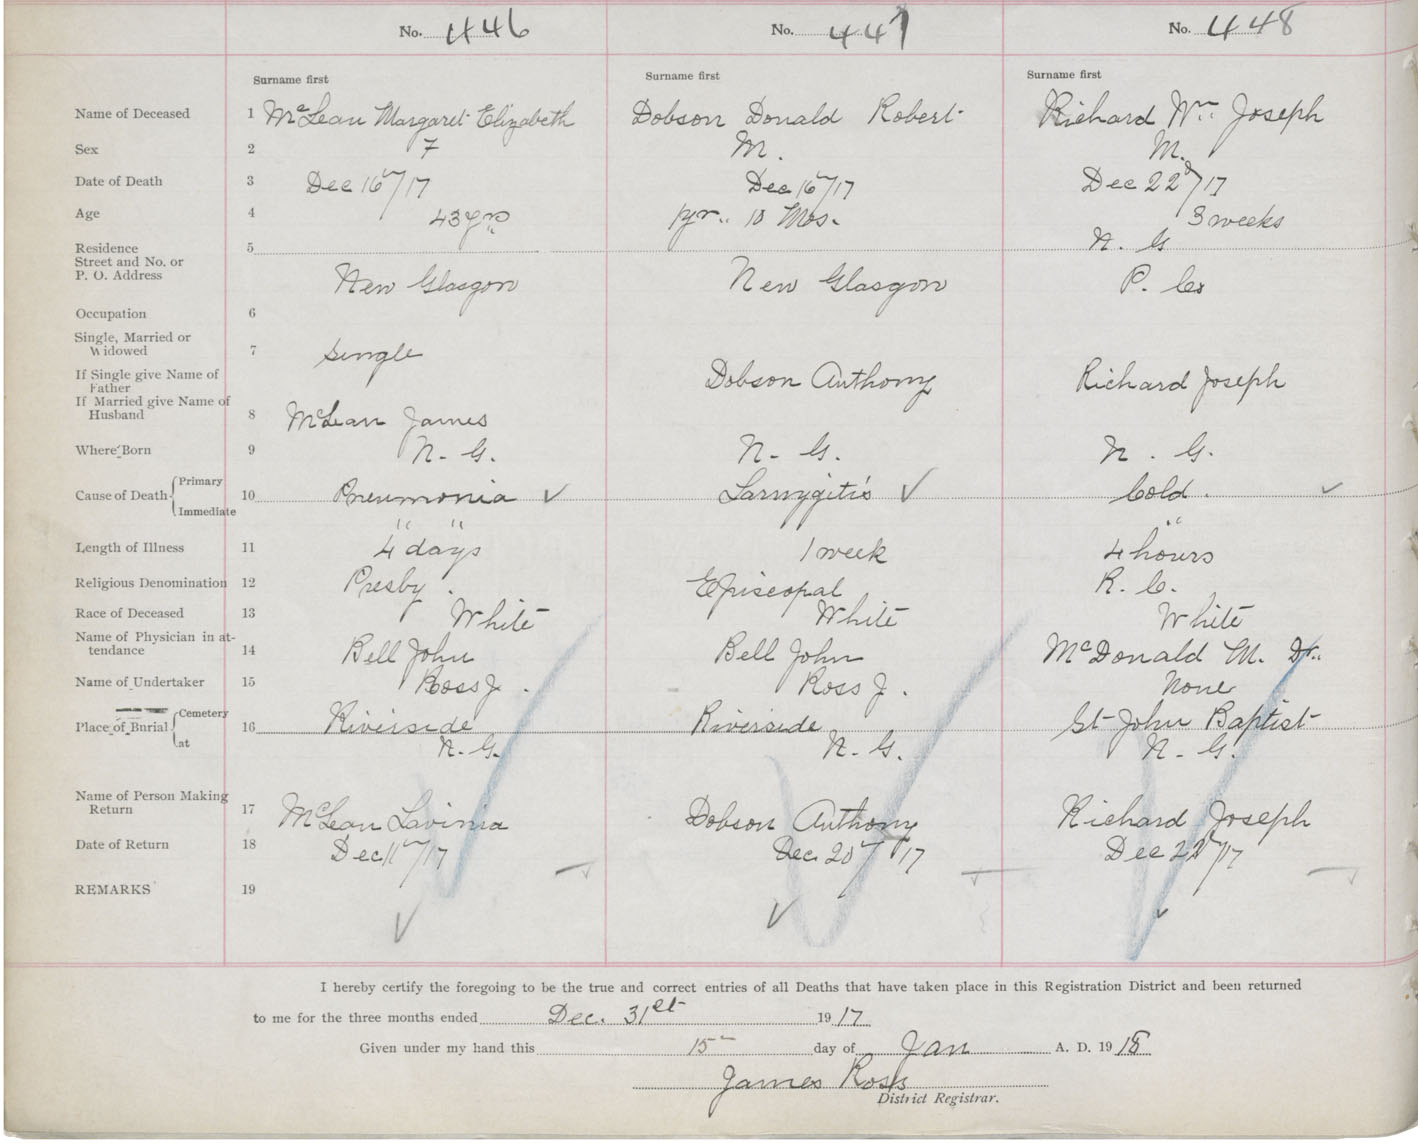 No. 446 No. 447 No. 448
Surname first Surname first Surname first
Name of Deceased 1 McLean Margaret Elizabeth Dobson Donald Robert Richard Wm Joseph
Sex 2 F M. M.
Date of Death 3 Dec 16/17 Dec 16/17 Dec 22d/17
Age 4 43 yrs 1 yr. 10 Mos. 3 weeks
Residence 5 N. G
Street and No. or
P. O. Address New Glasgow New Glasgow P. Co
Occupation 6
Single, Married or
Widowed 7 Single
If Single give Name of
Father Dobson Anthony Richard Joseph
If Married give Name of
Husband 8 McLean James
Where Born 9 N. G. N. G. N. G.
Primary
Cause of Death 10 Pneumonia ✓ Larnygitis ✓ Cold. ✓
Immediate " " "
Length of Illness 11 4 days 1 week 4 hours
Religious Denomination 12 Presby. Episcopal R. C.
Race of Deceased 13 White White White
Name of Physician in at-
tendance 14 Bell John Bell John McDonald M. Dr.
Name of Undertaker 15 Ross J. Ross J. None
Cemetery
Place of Burial 16 Riverside Riverside St John Baptist
at N. G. N. G. N. G.
Name of Person Making
Return 17 McLean Lavinia Dobson Anthony Richard Joseph
Date of Return 18 Dec 11/17 Dec. 20/17 Dec 22d/17
REMARKS 19
I hereby certify the foregoing to be the true and correct entries of all Deaths that have taken place in this Registration District and been returned
to me for the three months ended Dec. 31st 1917
Given under my hand this 15 day of Jan A. D. 1918
James Ross
District Registrar.